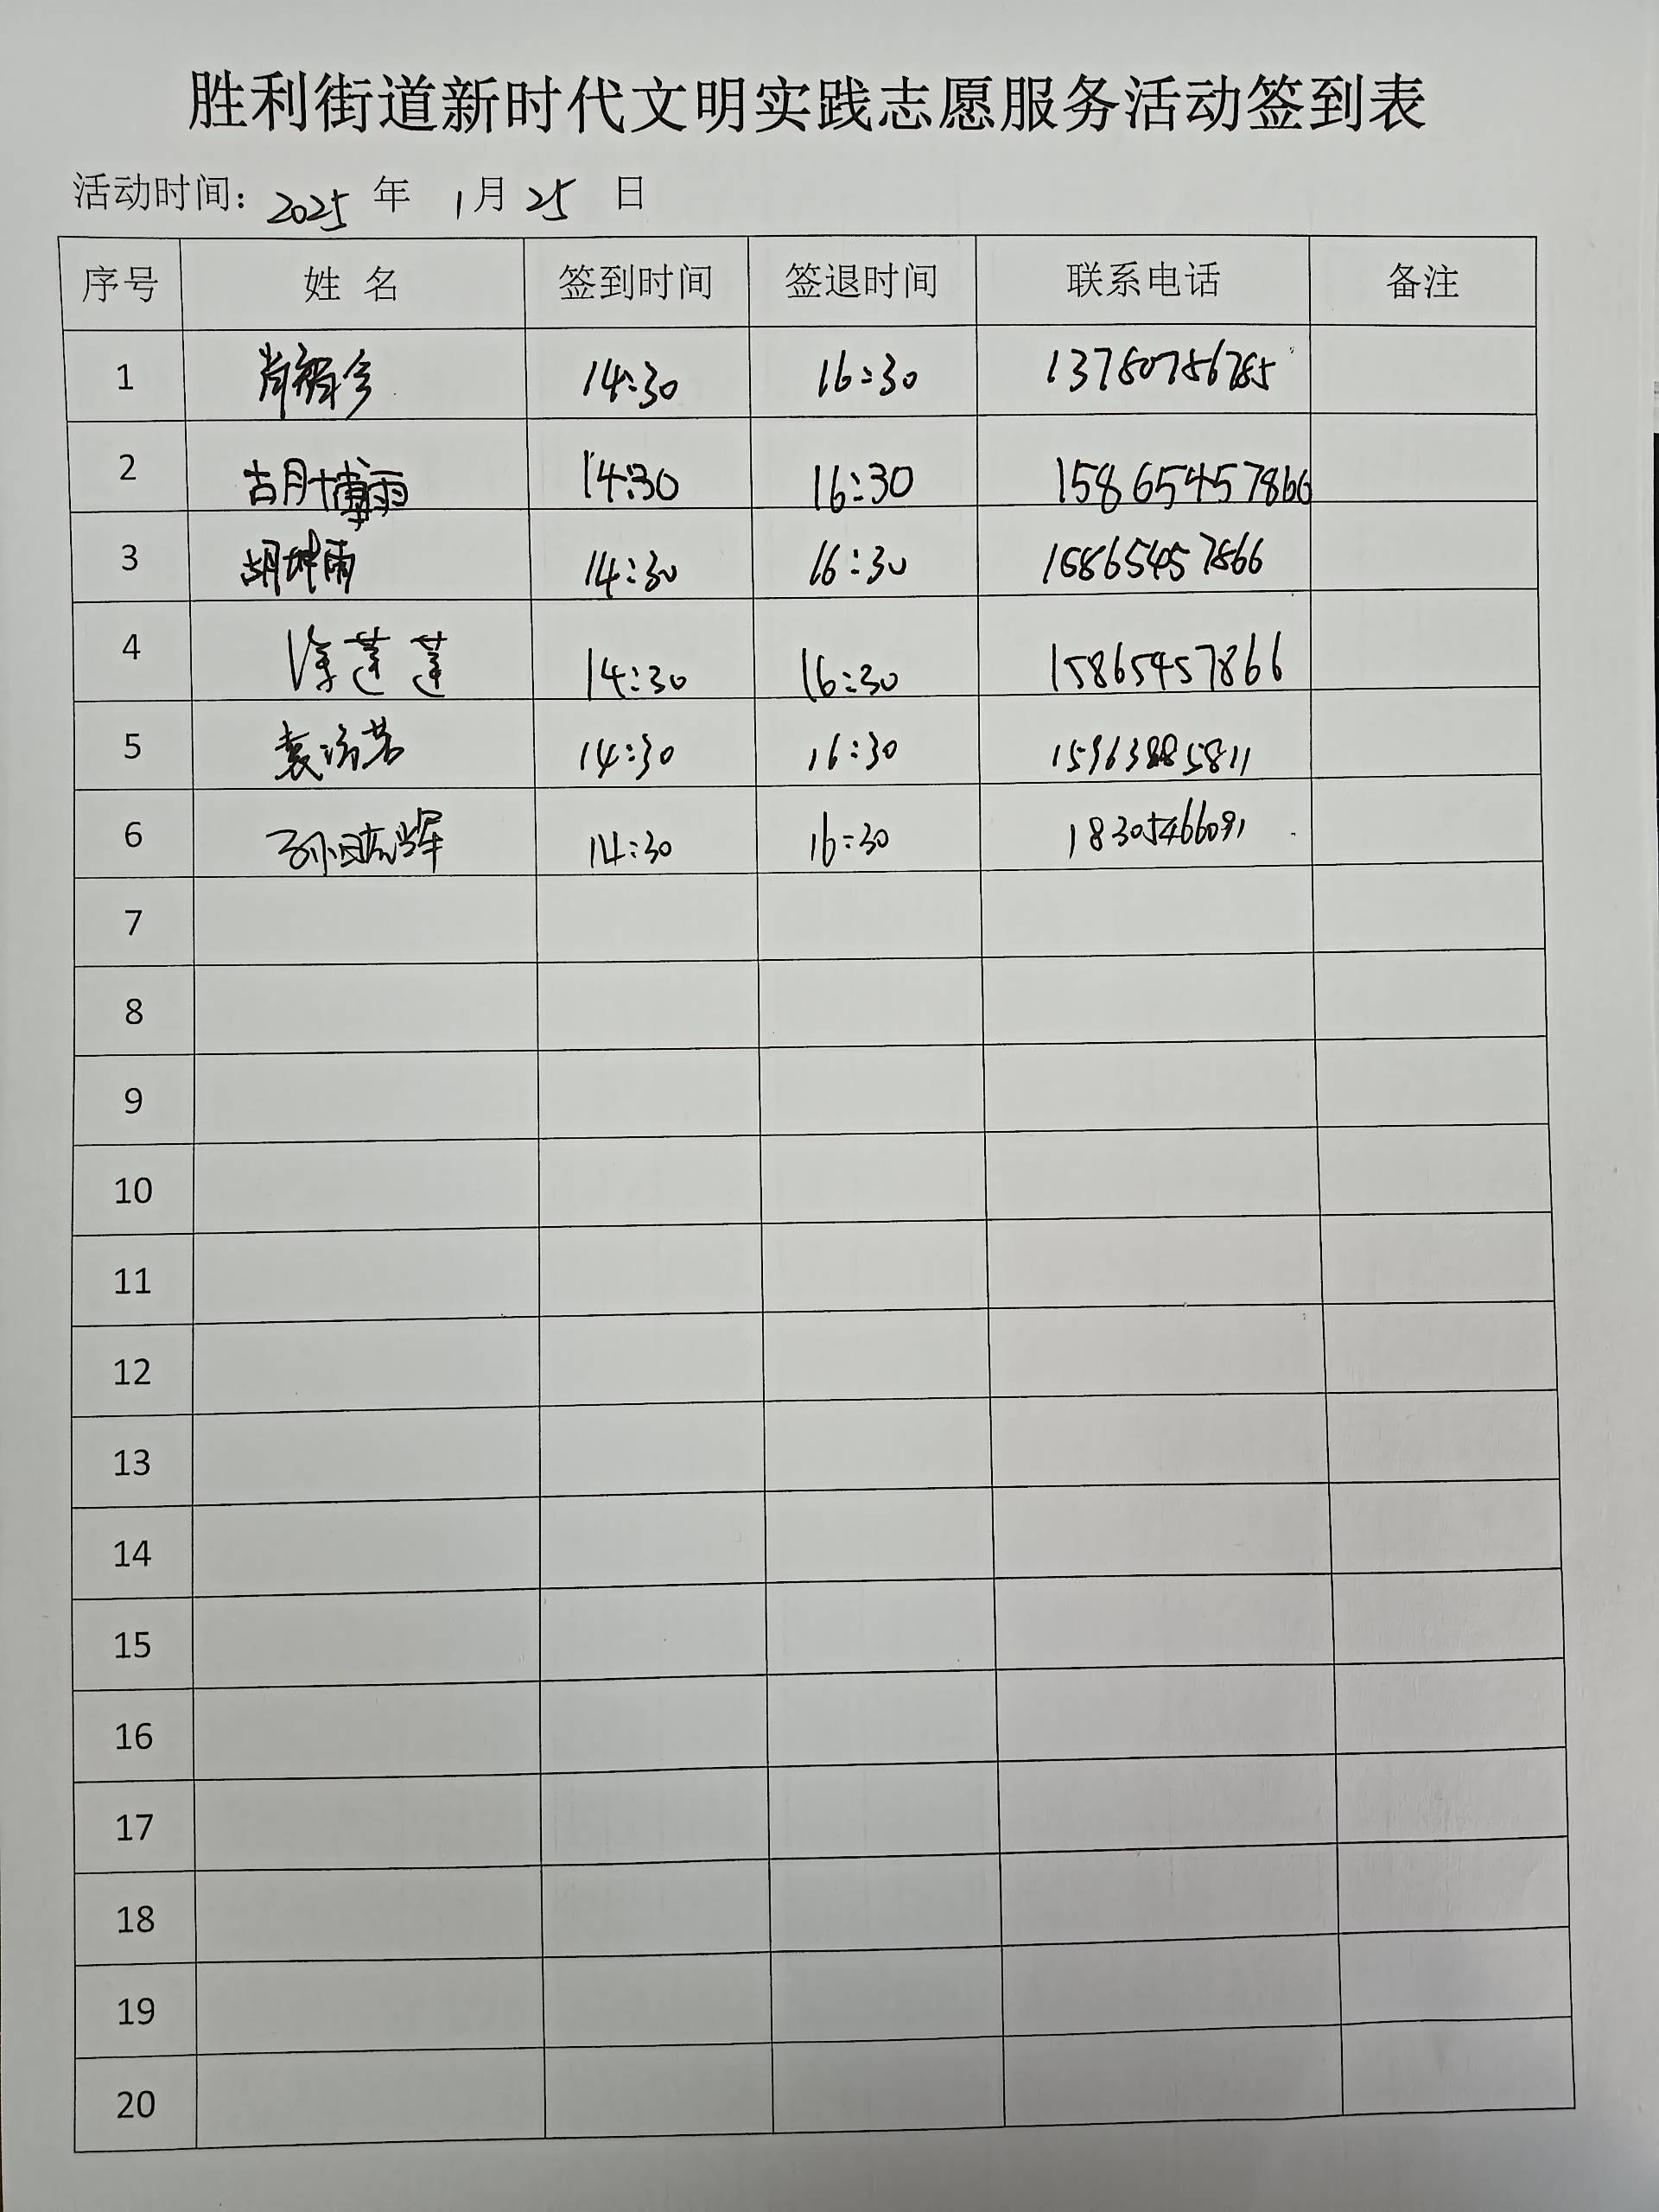 胜利街道新时代文明实践志愿服务活动签到表
活动时间：2025 年 1月 25 日
序号 姓 名 签到时间 签退时间 联系电话 备注
1 14:30 16:30 13780786785
2 胡博雨 14:30 16:30 15865457866
3 胡坤雨 14:30 16:30 15865457866
4 徐莲莲 14:30 16:30 15865457866
5 14:30 16:30 15963885811
6 14:30 16:30 18305466091
7
8
9
10
11
12
13
14
15
16
17
18
19
20